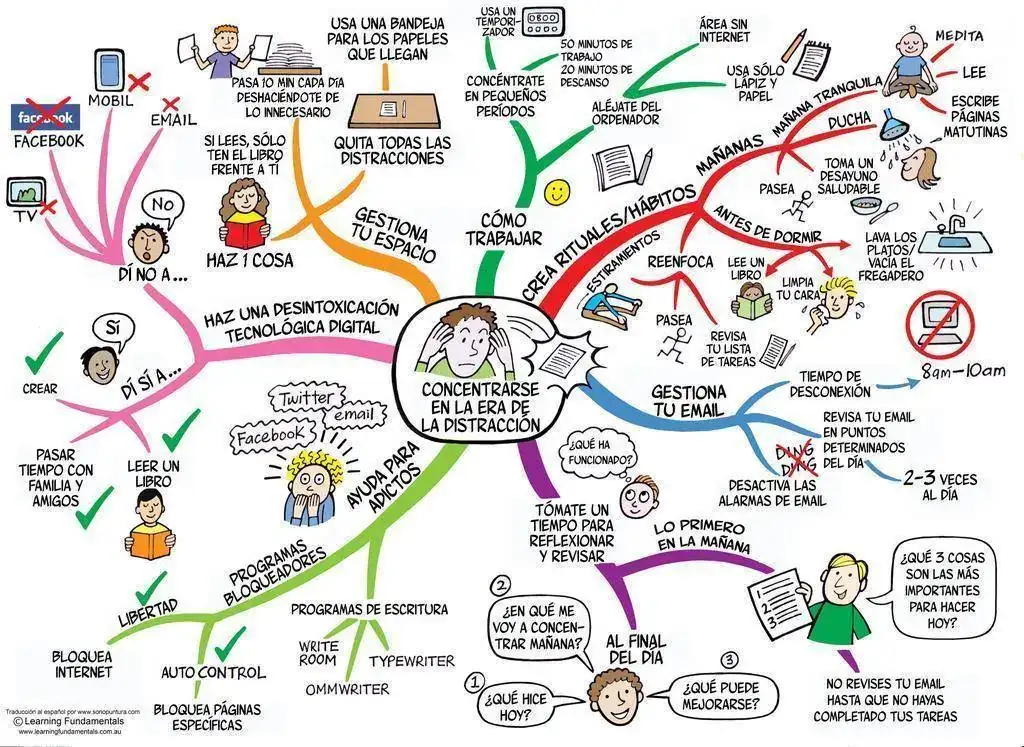 CONCENTRARSE
EN LA ERA DE
LA DISTRACCIÓN
CREA RITUALES/HÁBITOS
MAÑANAS
MAÑANA TRANQUILA
MEDITA
LEE
ESCRIBE
PÁGINAS
MATUTINAS
DUCHA
TOMA UN
DESAYUNO
SALUDABLE
PASEA
ANTES DE DORMIR
LAVA LOS
PLATOS/
VACÍA EL
FREGADERO
LIMPIA
TU CARA
LEE UN
LIBRO
REENFOCA
PASEA
REVISA
TU LISTA
DE TAREAS
ESTIRAMIENTOS
GESTIONA
TU EMAIL
TIEMPO DE
DESCONEXIÓN
8am-10am
REVISA TU EMAIL
EN PUNTOS
DETERMINADOS
DEL DÍA
2-3 VECES
AL DÍA
DING
DING
DESACTIVA LAS
ALARMAS DE EMAIL
TÓMATE UN
TIEMPO PARA
REFLEXIONAR
Y REVISAR
¿QUÉ HA
FUNCIONADO?
LO PRIMERO
EN LA MAÑANA
1
2
3
¿QUÉ 3 COSAS
SON LAS MÁS
IMPORTANTES
PARA HACER
HOY?
NO REVISES TU EMAIL
HASTA QUE NO HAYAS
COMPLETADO TUS TAREAS
AL FINAL
DEL DÍA
1
¿QUÉ HICE
HOY?
2
¿EN QUÉ ME
VOY A CONCEN-
TRAR MAÑANA?
3
¿QUÉ PUEDE
MEJORARSE?
AYUDA PARA
ADICTOS
Twitter
email
Facebook
PROGRAMAS DE ESCRITURA
WRITE
ROOM
OMMWRITER
TYPEWRITER
PROGRAMAS
BLOQUEADORES
LIBERTAD
BLOQUEA
INTERNET
AUTO CONTROL
BLOQUEA PÁGINAS
ESPECÍFICAS
HAZ UNA DESINTOXICACIÓN
TECNOLÓGICA DIGITAL
DÍ SÍ A ...
Sí
CREAR
PASAR
TIEMPO CON
FAMILIA Y
AMIGOS
LEER UN
LIBRO
DÍ NO A ...
No
TV
facebook
FACEBOOK
MOBIL
EMAIL
GESTIONA
TU ESPACIO
HAZ 1 COSA
SI LEES, SÓLO
TEN EL LIBRO
FRENTE A TÍ
PASA 10 MIN CADA DÍA
DESHACIÉNDOTE DE
LO INNECESARIO
USA UNA BANDEJA
PARA LOS PAPELES
QUE LLEGAN
QUITA TODAS LAS
DISTRACCIONES
CÓMO
TRABAJAR
CONCÉNTRATE
EN PEQUEÑOS
PERÍODOS
USA UN
TEMPORI-
ZADOR
50 MINUTOS DE
TRABAJO
20 MINUTOS DE
DESCANSO
ALÉJATE DEL
ORDENADOR
ÁREA SIN
INTERNET
USA SÓLO
LÁPIZ Y
PAPEL
Traducción al español por www.sonopuntura.com
© Learning Fundamentals
www.learningfundamentals.com.au